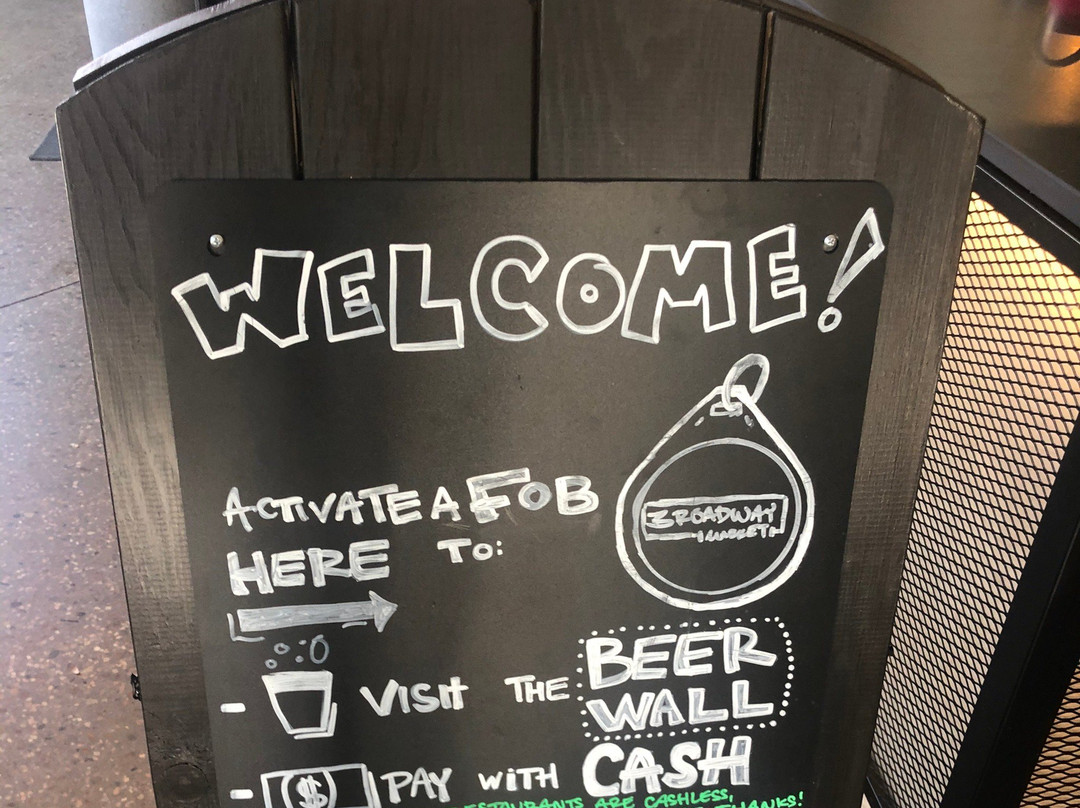 WELCOME!
ACTIVATE A FOB
HERE TO:
BROADWAY
MARKET
- VISIT THE BEER
WALL
- $ PAY WITH CASH
RESTAURANTS ARE CASHLESS,
THANKS!